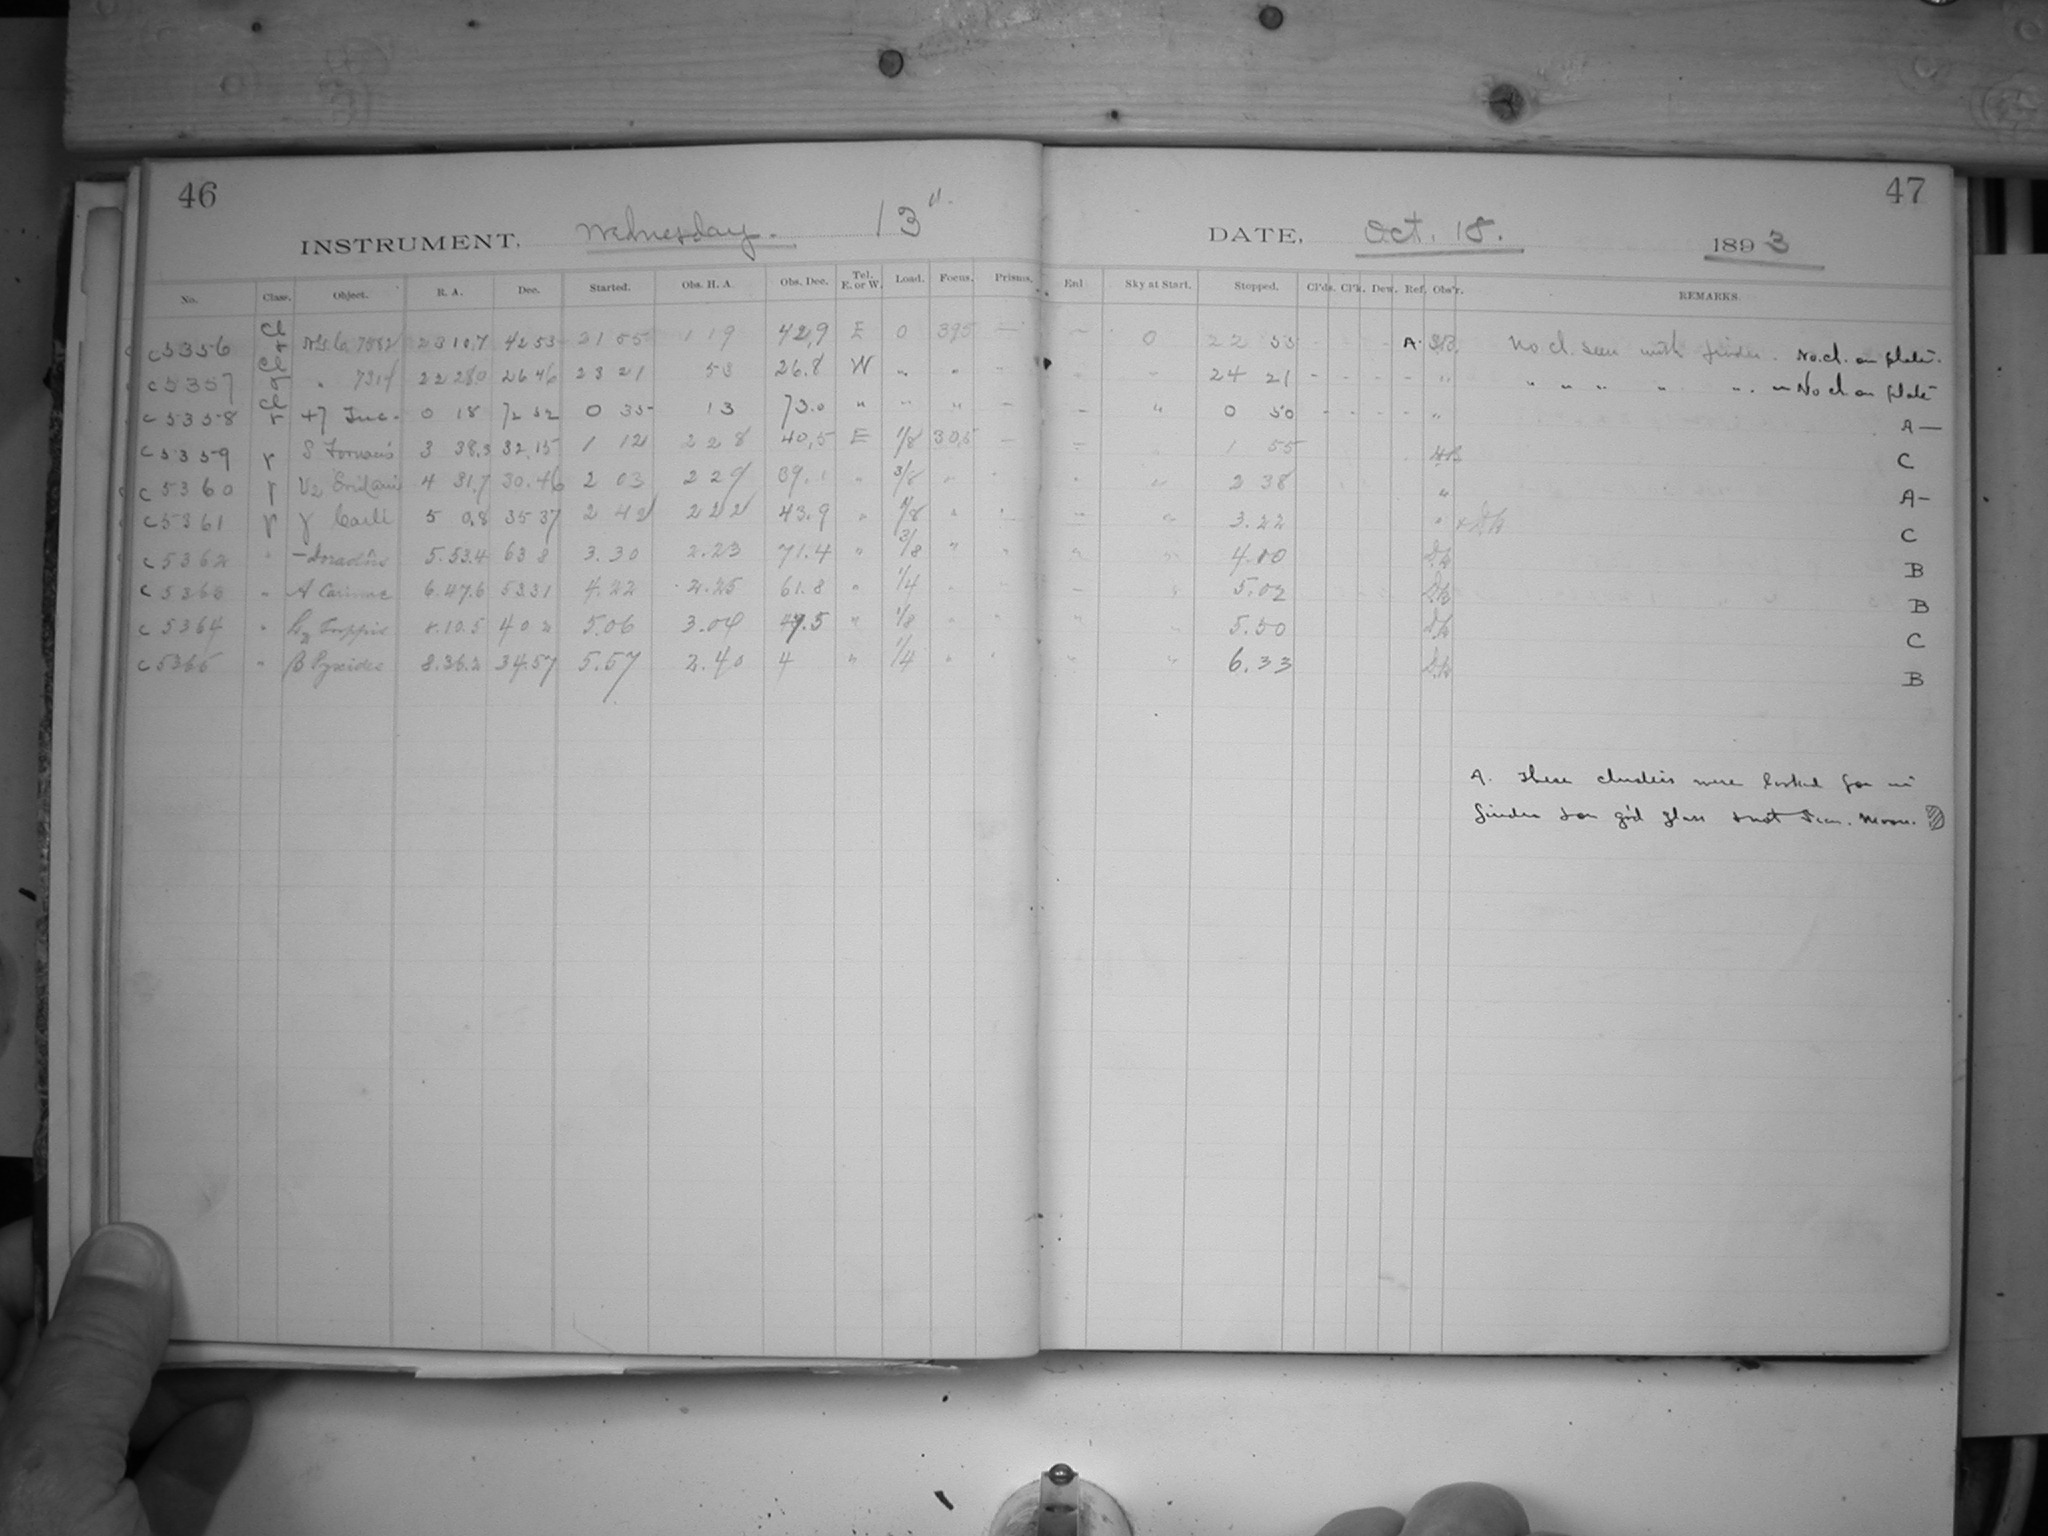 46
INSTRUMENT, Wednesday. 13".
No. Class. Object. R. A. Dec. Started. Obs. H. A. Obs. Dec. Tel. E. or W. Load. Focus. Prisms.
c5356 Cl 23 10.7 42 53 21 55 1 19 42.9 E 0 395 —
c5357 Cl " 22 28.0 26 46 23 21 53 26.8 W " "
c5358 Cl r +7 Tuc. 0 18 72 52 0 35 13 73.0 " " " —
c5359 r S Fornacis 3 38.3 32.15 1 12 2 28 40.5 E 1/8 30.5 —
c5360 r υ2 Eridani 4 31.7 30.46 2 03 2 29 39.1 " 3/8 "
c5361 r γ Caeli 5 0.8 35 37 2 42 2 22 43.9 " "
c5362 " – Doradus 5.53.4 63 8 3.30 2.23 71.4 " 3/8 " "
" A Carinae 6.47.6 53 31 4.22 2.25 61.8 " 1/4 "
c5364 " Puppis 8.10.5 40 2 5.06 " 1/8 " "
" β Pyxidis 8.36.2 34.57 5.57 2.40 4 " 1/4 " "
47
DATE, Oct. 18. 1893
Enl Sky at Start. Stopped. Cl'ds. Cl'k. Dew. Ref. Obs'r. REMARKS.
– 0 22 55 A. No cl. seen with finder. No. cl. on plate.
" " 24 21 " " " " " " No cl. on plate
– " 0 50 " A—
1 55 C
" 2 38 " A–
" 3.22 " C
" " 4.10 B
– " 5.02 B
" " 5.50 C
" " 6.33 B
A. These clusters were looked for in
finder & on g'd glass & not seen. Moon.